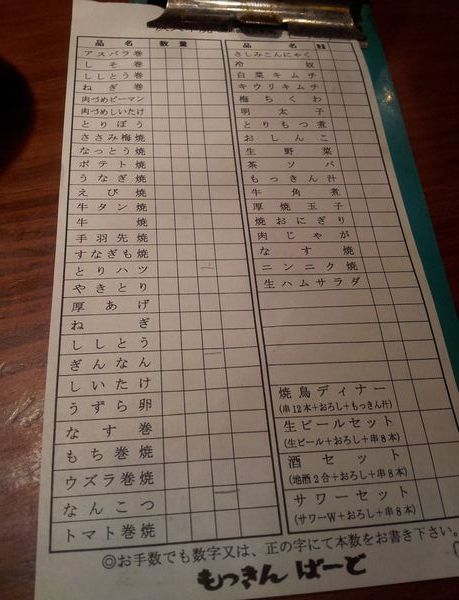 品名 数量
アスパラ巻
しそ巻
ししとう巻
ねぎ巻
肉づめピーマン
肉づめしいたけ
とりぼう
ささみ梅焼
なっとう焼
ポテト焼
うなぎ焼
えび焼
牛タン焼
牛焼
手羽先焼
すなぎも焼
とりハツ
やきとり
厚あげ
ねぎ
ししとう
ぎんなん
しいたけ
うずら卵
なす巻
もち巻焼
ウズラ巻焼
なんこつ
トマト巻焼
品名
さしみこんにゃく
冷奴
白菜キムチ
キウリキムチ
梅ちくわ
明太子
とりもつ煮
おしんこ
生野菜
茶ソバ
もっきん汁
牛角煮
厚焼玉子
焼おにぎり
肉じゃが
なす焼
ニンニク焼
生ハムサラダ
焼鳥ディナー
(串12本+おろし+もっきん汁)
生ビールセット
(生ビール+おろし+串8本)
酒セット
(地酒2合+おろし+串8本)
サワーセット
(サワーW+おろし+串8本)
◎お手数でも数字又は、正の字にて本数をお書き下さい。
もっきんばーど